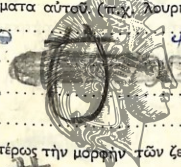 ματα αὐτοῦ. (π.χ. λουρι
τέρως τὴν μορφὴν τῶν ζε